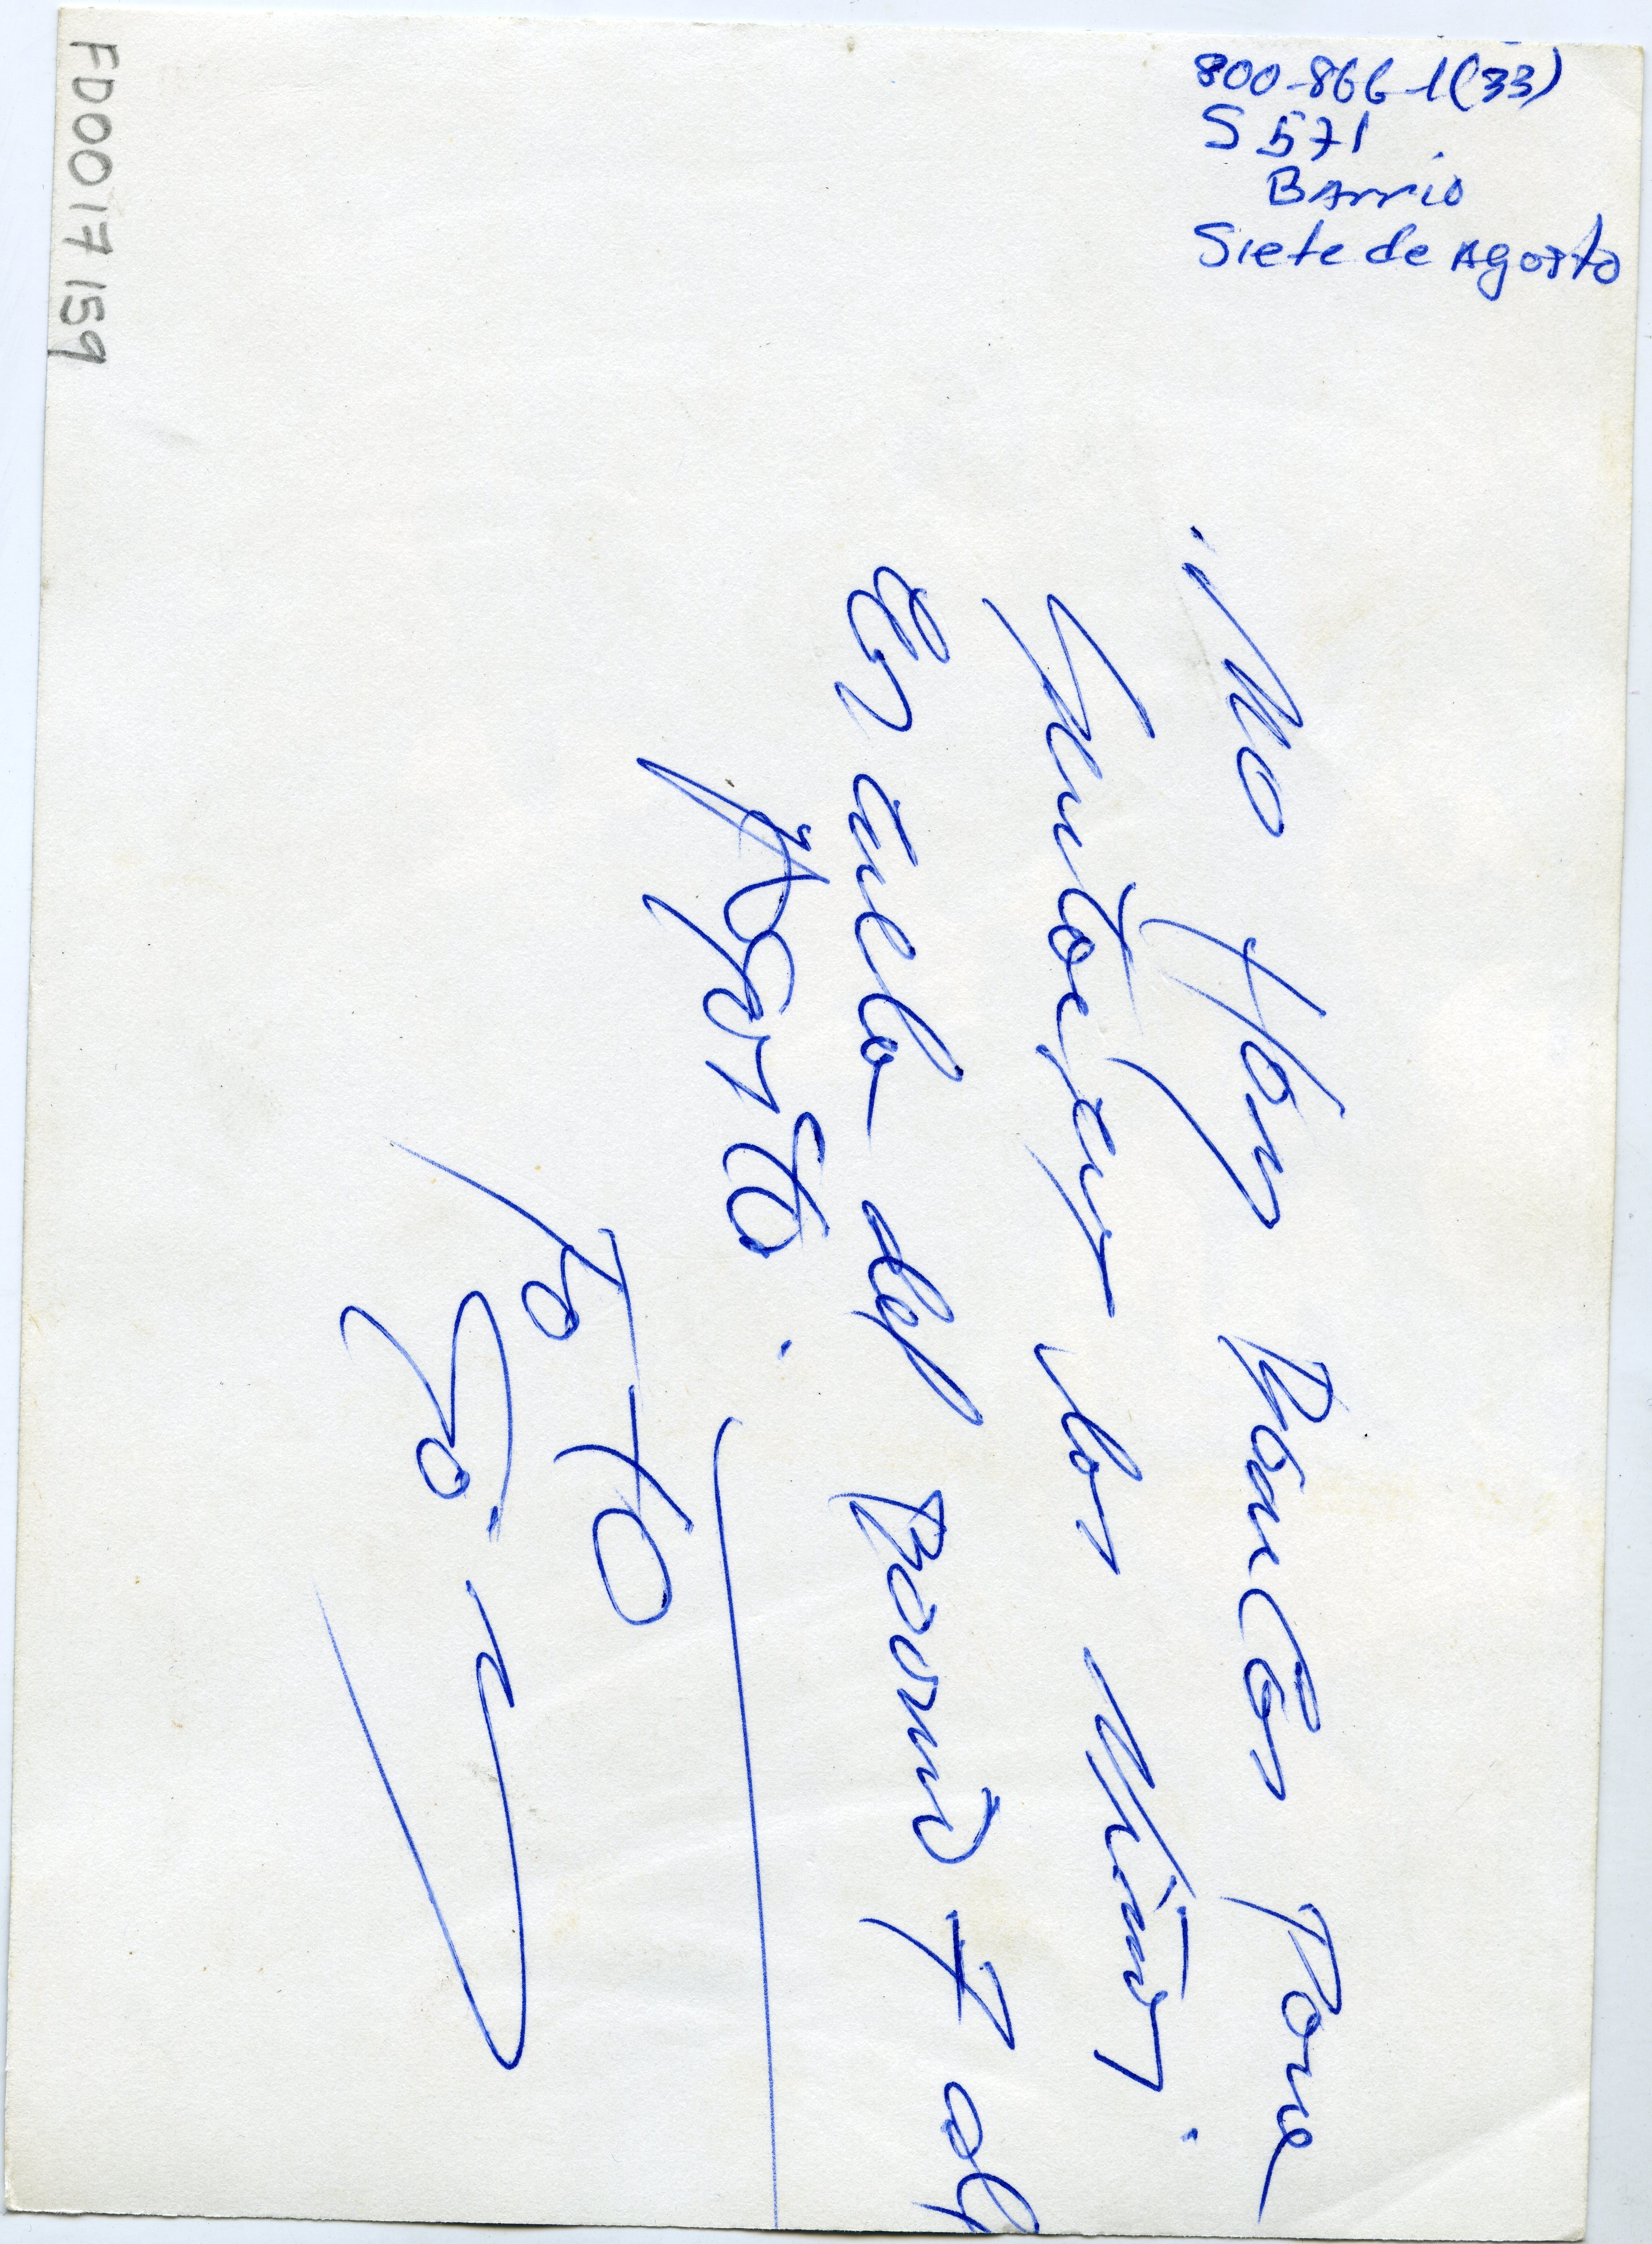 800-866-1(33)
S 571
Barrio
Siete de Agosto
FD0017159
No Hay Bancas Para
Sentarsen los Niños.
Escuela del Barrio 7 de
Agosto.
Foto